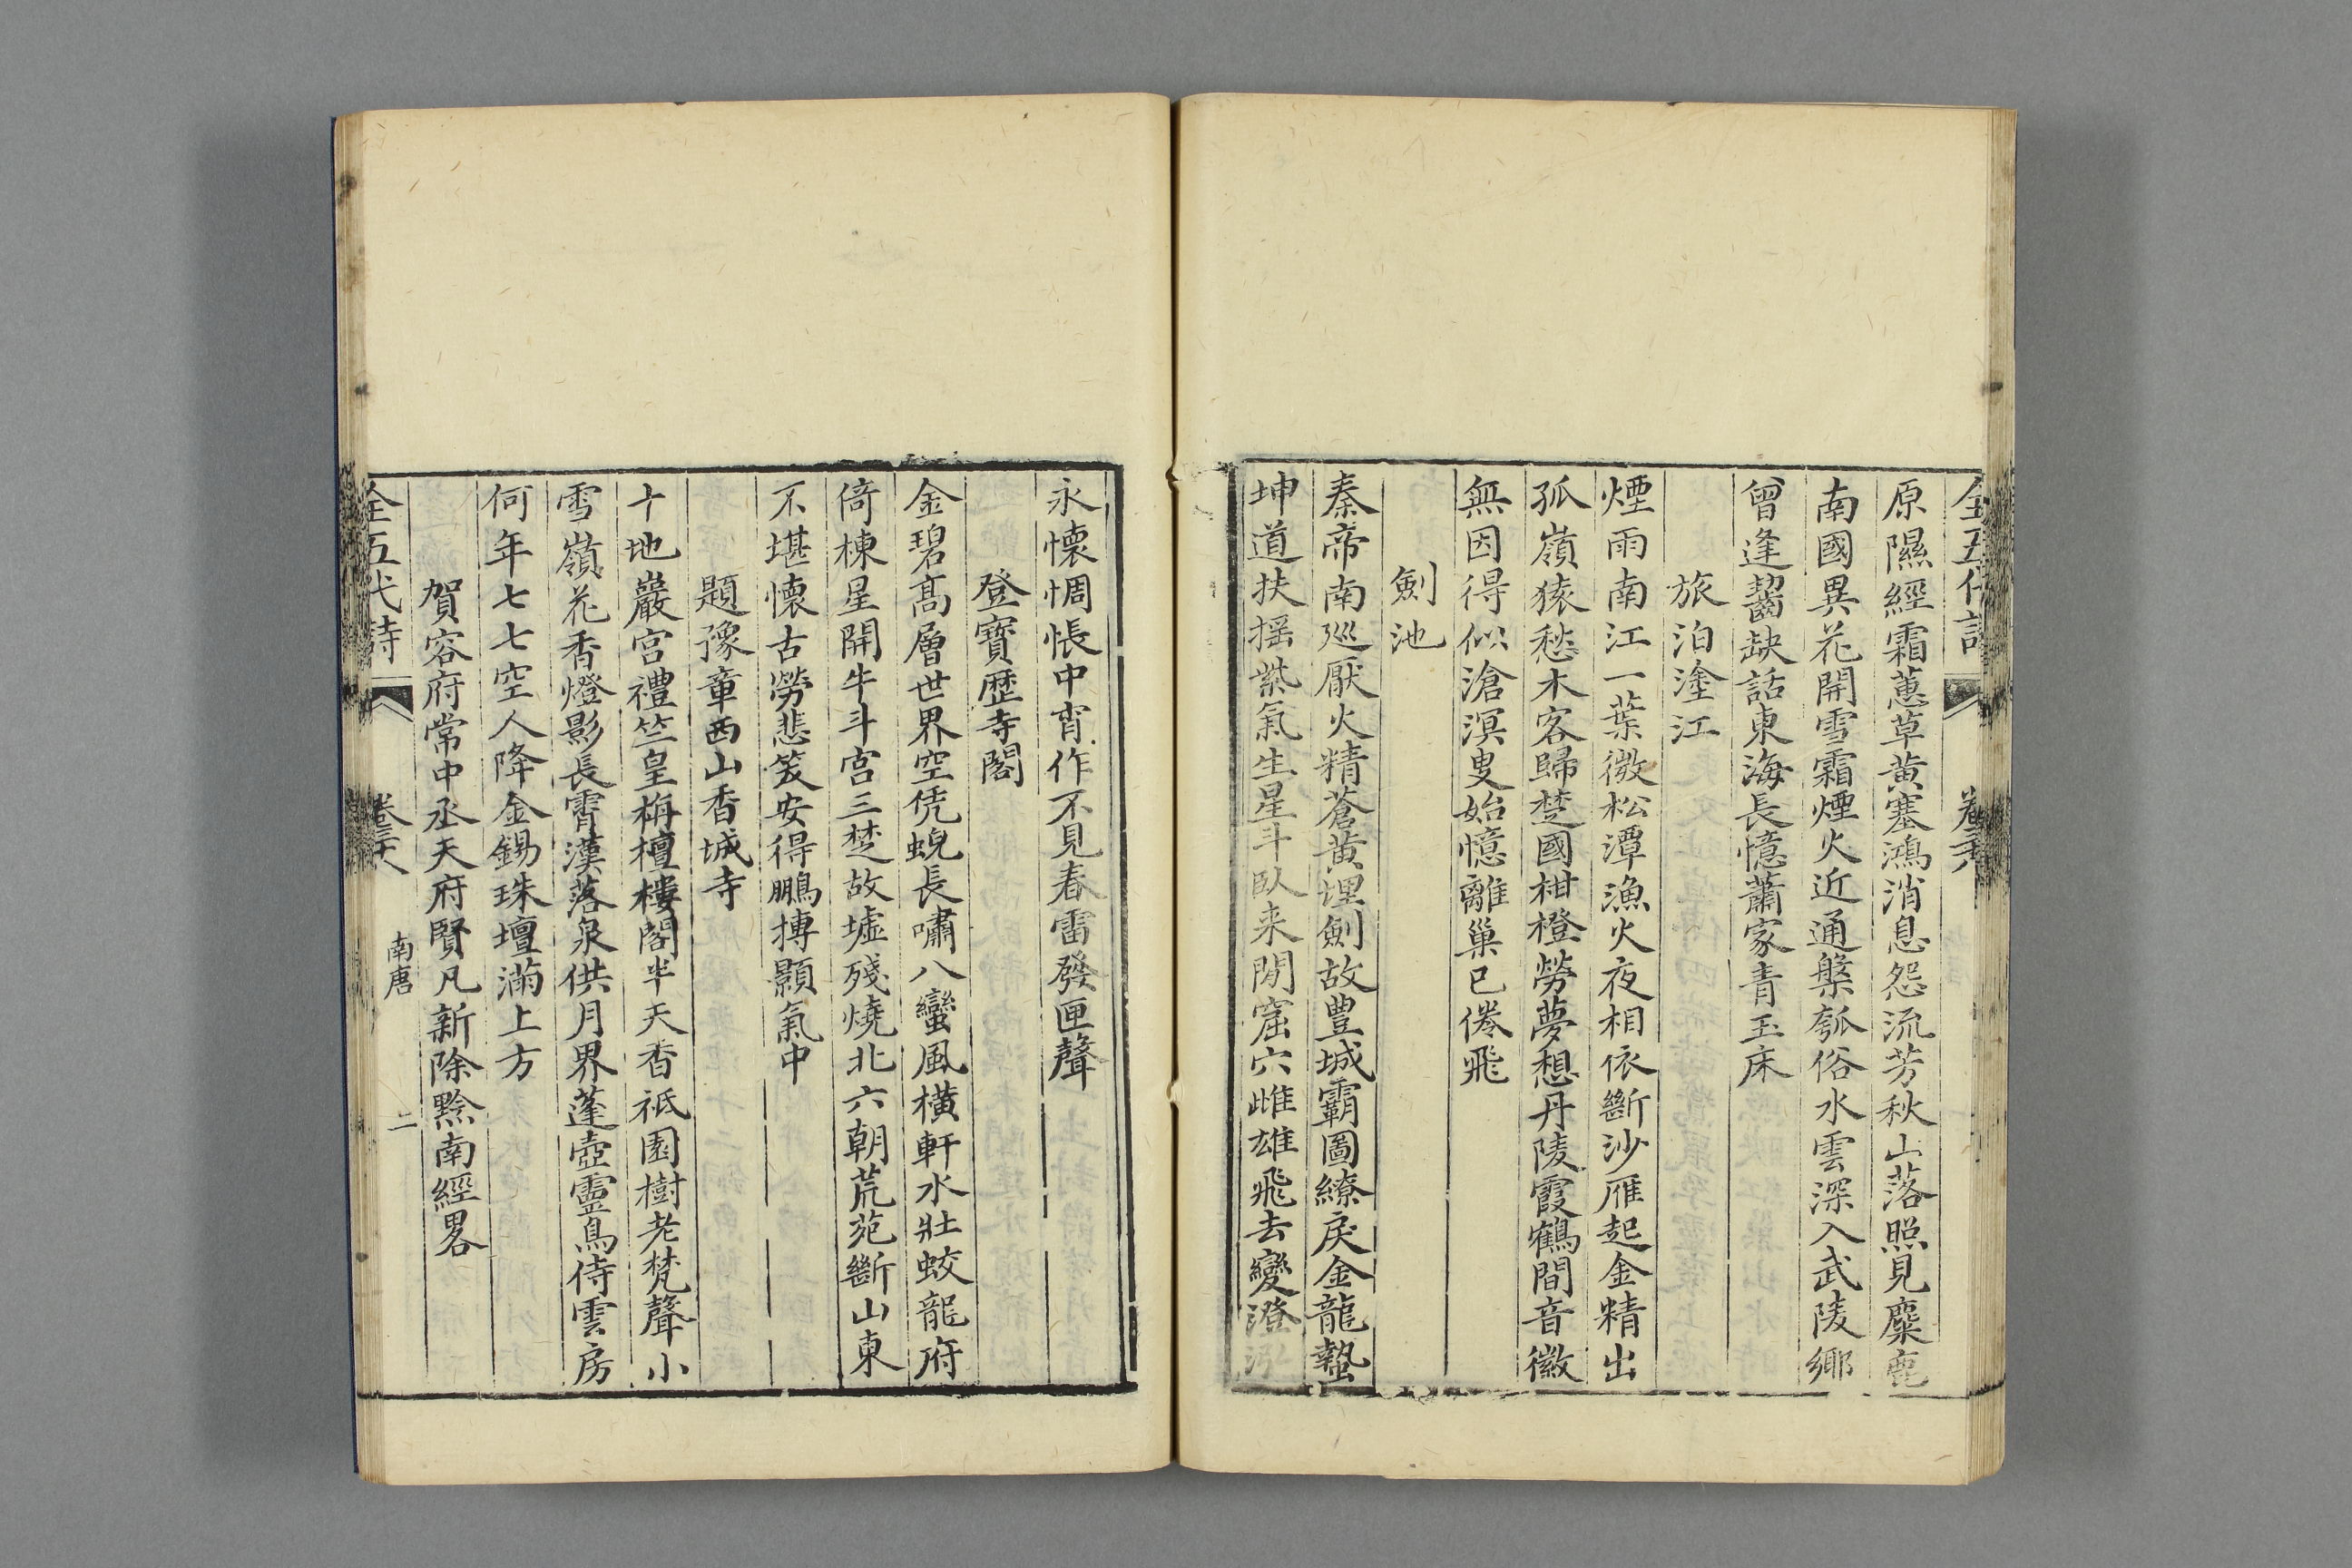 全五代詩 卷三十六
原隰經霜蕙草黄塞鴻消息怨流芳秋山落照見麋鹿
南國異花開雪霜煙火近通槃瓠俗水雲深入武陵鄉
曾逢齧缺話東海長憶蕭家青玉床
旅泊塗江
煙雨南江一葉微松潭漁火夜相依斷沙雁起金精出
孤嶺猿愁木客歸楚國柑橙勞夢想丹陵霞鶴間音徽
無因得似滄溟叟始憶離巢已倦飛
劍池
秦帝南廵厭火精蒼黄埋劍故豊城霸圖繚戾金龍蟄
坤道扶摇紫氣生星斗臥来閒窟穴雌雄飛去變澄泓
永懷惆悵中宵作不見春雷發匣聲
登寶歷寺閣
金碧髙層世界空凭蜺長嘯八蠻風橫軒水壯蛟龍府
倚棟星開牛斗宫三楚故墟殘燒北六朝荒苑斷山東
不堪懷古勞悲笑安得鵬摶顥氣中
題豫章西山香城寺
十地巖宫禮竺皇栴檀樓閣半天香祇園樹老梵聲小
雪嶺花香燈影長霄漢落泉供月界蓬壺靈鳥侍雲房
何年七七空人降金錫珠壇滿上方
賀容府常中丞天府賢凡新除黔南經畧
全五代詩 卷三十六 南唐 二